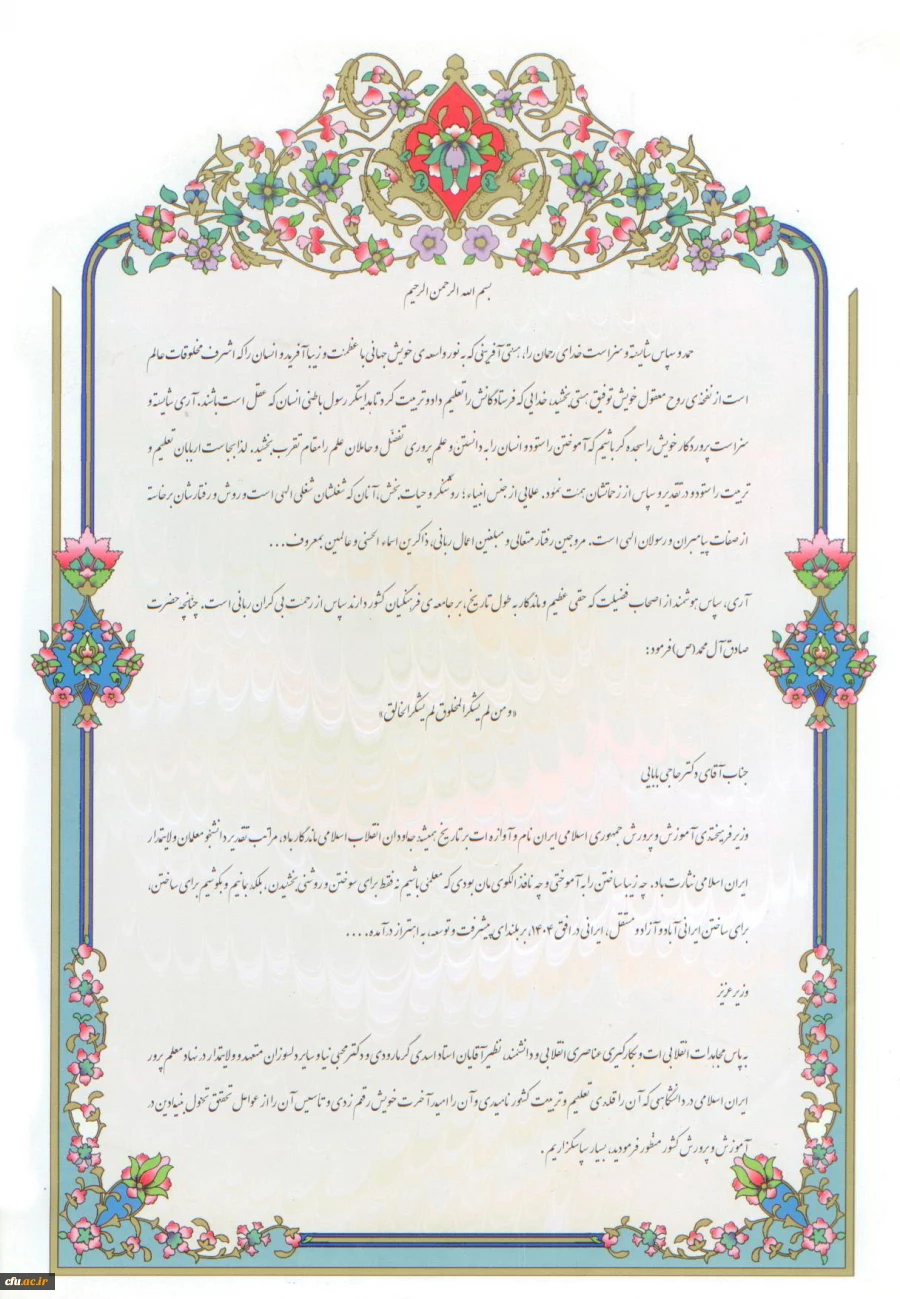 بسم الله الرحمن الرحیم
حمد و سپاس شایسته و سزاست خدای رحمان را، هستی آفرینی که به نور واسعه ی خویش جهانی با عظمت و زیبا آفرید و انسان را که اشرف مخلوقات عالم
است از نفخه ی روح معقول خویش توفیق هستی بخشید، خدایی که فرستادگانش را تعلیم داد و تربیت کرد تا بدایتگر رسول باطنی انسان که عقل است باشند. آری شایسته و
سزاست پروردگار خویش را سجده گر باشیم که آموختن را ستود و انسان را به دانستن و علم پروری تفضّل و حاملان علم را مقام تقرب بخشید. لذا بجاست اربابان تعلیم و
تربیت را ستود و در تقدیر و سپاس از زحماتشان همت نمود. علمایی از جنس انبیاء؛ روشنگر و حیات بخش، آنان که شغلشان شغلی الهی است و روش و رفتارشان برخاسته
از صفات پیامبران و رسولان الهی است. مروجین رفتار متعالی و مبلغین اعمال ربانی، ذاکرین اسماء الحسنی و عالمین بمعروف...
آری، سپاس هوشمند از اصحاب فضیلت که حقی عظیم و ماندگار به طول تاریخ، بر جامعه ی فرهنگیان کشور دارند سپاس از رحمت بی کران ربانی است. چنانچه حضرت
صادق آل محمد(ص) فرمود:
«و من لم یشکر المخلوق لم یشکر الخالق»
جناب آقای دکتر حاجی بابایی
وزیر فرهیخته ی آموزش و پرورش جمهوری اسلامی ایران نام و آوازه ات بر تاریخ همیشه جاودان انقلاب اسلامی ماندگار باد، مراتب تقدیر دانشجو معلمان ولایتمدار
ایران اسلامی نثارت باد. چه زیبا ساختن را به آموختی و چه نافذ الگوی مان بودی که معلمی باشیم نه فقط برای سوختن و روشنی بخشیدن، بلکه بمانیم و بکوشیم برای ساختن،
برای ساختن ایرانی آباد و آزاد و مستقل، ایرانی در افق ۱۴۰۴، بر بلندای پیشرفت و توسعه، به اهتزاز درآمده....
وزیر عزیز
به پاس مجاهدات انقلابی ات و بکارگیری عناصری انقلابی و دانشمند، نظیر آقایان استاد اسدی گرمارودی و دکتر محبی نیا و سایر دلسوزان متعهد و ولایتمدار در نهاد معلم پرور
ایران اسلامی در دانشگاهی که آن را قله ی تعلیم و تربیت کشور نامیدی و آن را امید آخرت خویش رقم زدی و تاسیس آن را از عوامل تحقق تحول بنیادین در
آموزش و پرورش کشور منظور فرمودید، بسیار سپاسگزاریم.
cfu.ac.ir